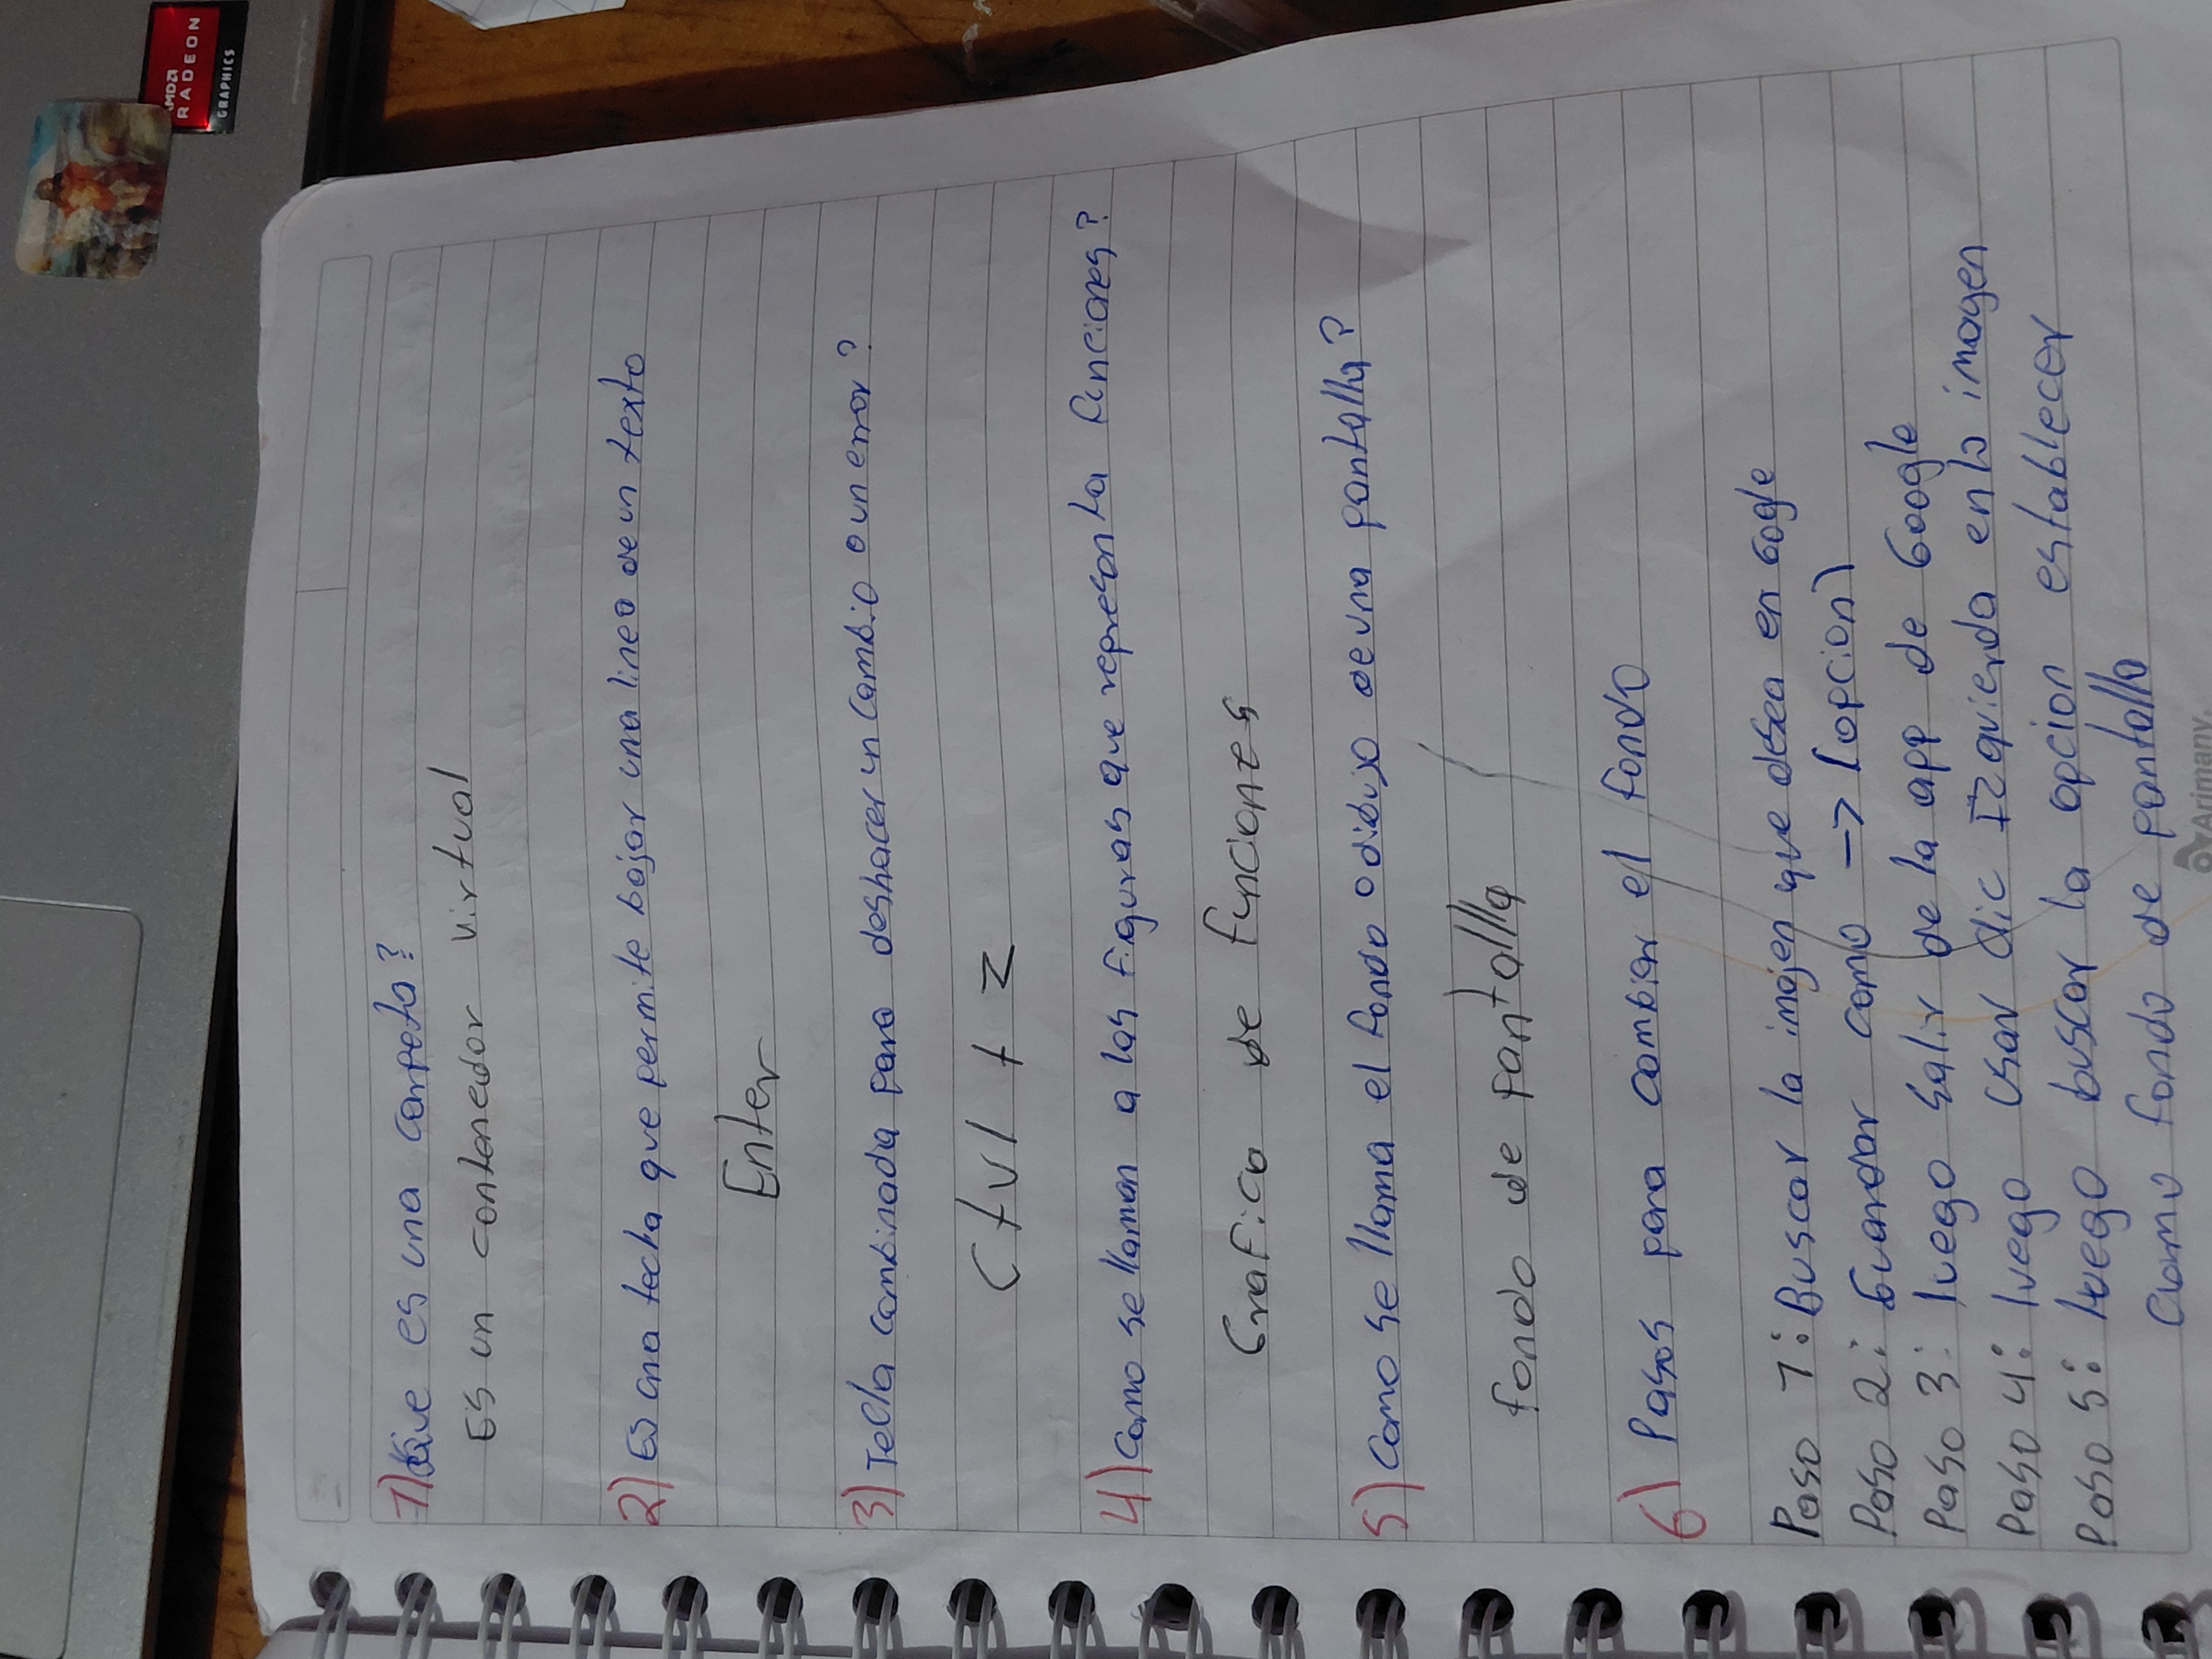 1) Que es una carpeta?
Es un contenedor virtual
2) Es una techa que permite bajar una linea de un texto
Enter
3) Teclla combinada para deshacer un cambio o un error?
Ctrl + Z
4) Como se llaman a las figuras que representa funciones?
Grafica de funciones
5) Como se llama el fondo o dibujo de una pantalla?
fondo de Pantalla
6) Pasos para cambiar el fondo
Paso 1: Buscar la imajen que desea en Google
Paso 2: Guardar como -> (opcion)
Paso 3: luego salir de la app de Google
Paso 4: luego usar clic Izquierda en la imagen
Paso 5: luego buscar la opcion establecer
Como fondo de pantalla
Arimany.
AMD
RADEON
GRAPHICS